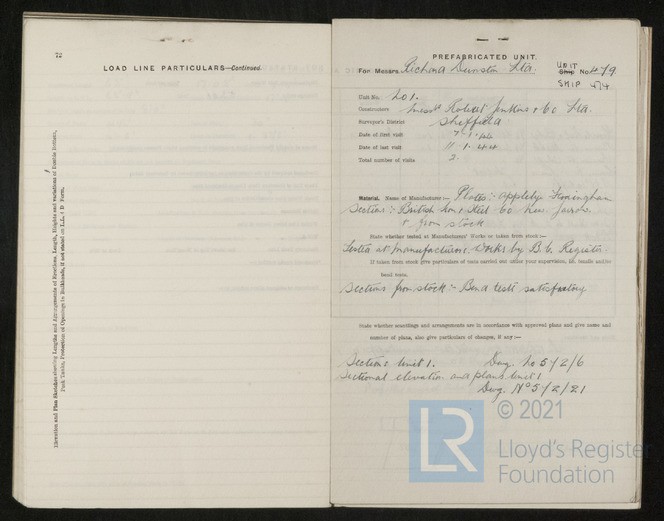 72
LOAD LINE PARTICULARS—Continued.
Elevation and Plan Sketches showing Lengths and Arrangements of Erections, Length, Heights and variations of Double Bottom,
Peak Tanks, Protection of Openings in Bulkheads, if not stated on L.L. 4 D Form.
PREFABRICATED UNIT.
For Messrs. Richard Dunston Ltd. UNIT Ship No. 479
SHIP 474
Unit No. No 1.
Constructors Messrs Robert Jenkins & Co Ltd.
Surveyor's District Sheffield
Date of first visit 7.1.44
Date of last visit 11.1.44
Total number of visits 2.
Material. Name of Manufacturer:— Plates:- Appleby Frodingham
Sections:- British Iron & Steel Co New Jarrow.
& from stock
State whether tested at Manufacturers' Works or taken from stock:—
Tested at Manufacturers Works by B.C. Register
If taken from stock give particulars of tests carried out under your supervision, i.e. tensile and/or
bend tests.
Sections from stock:- Bend tests satisfactory
State whether scantlings and arrangements are in accordance with approved plans and give name and
number of plans, also give particulars of changes, if any:—
Sections Unit 1. Dwg. No 5/2/6
Sectional elevation and plans Unit 1
Dwg. No 5/2/21
© 2021
LR
Lloyd's Register
Foundation